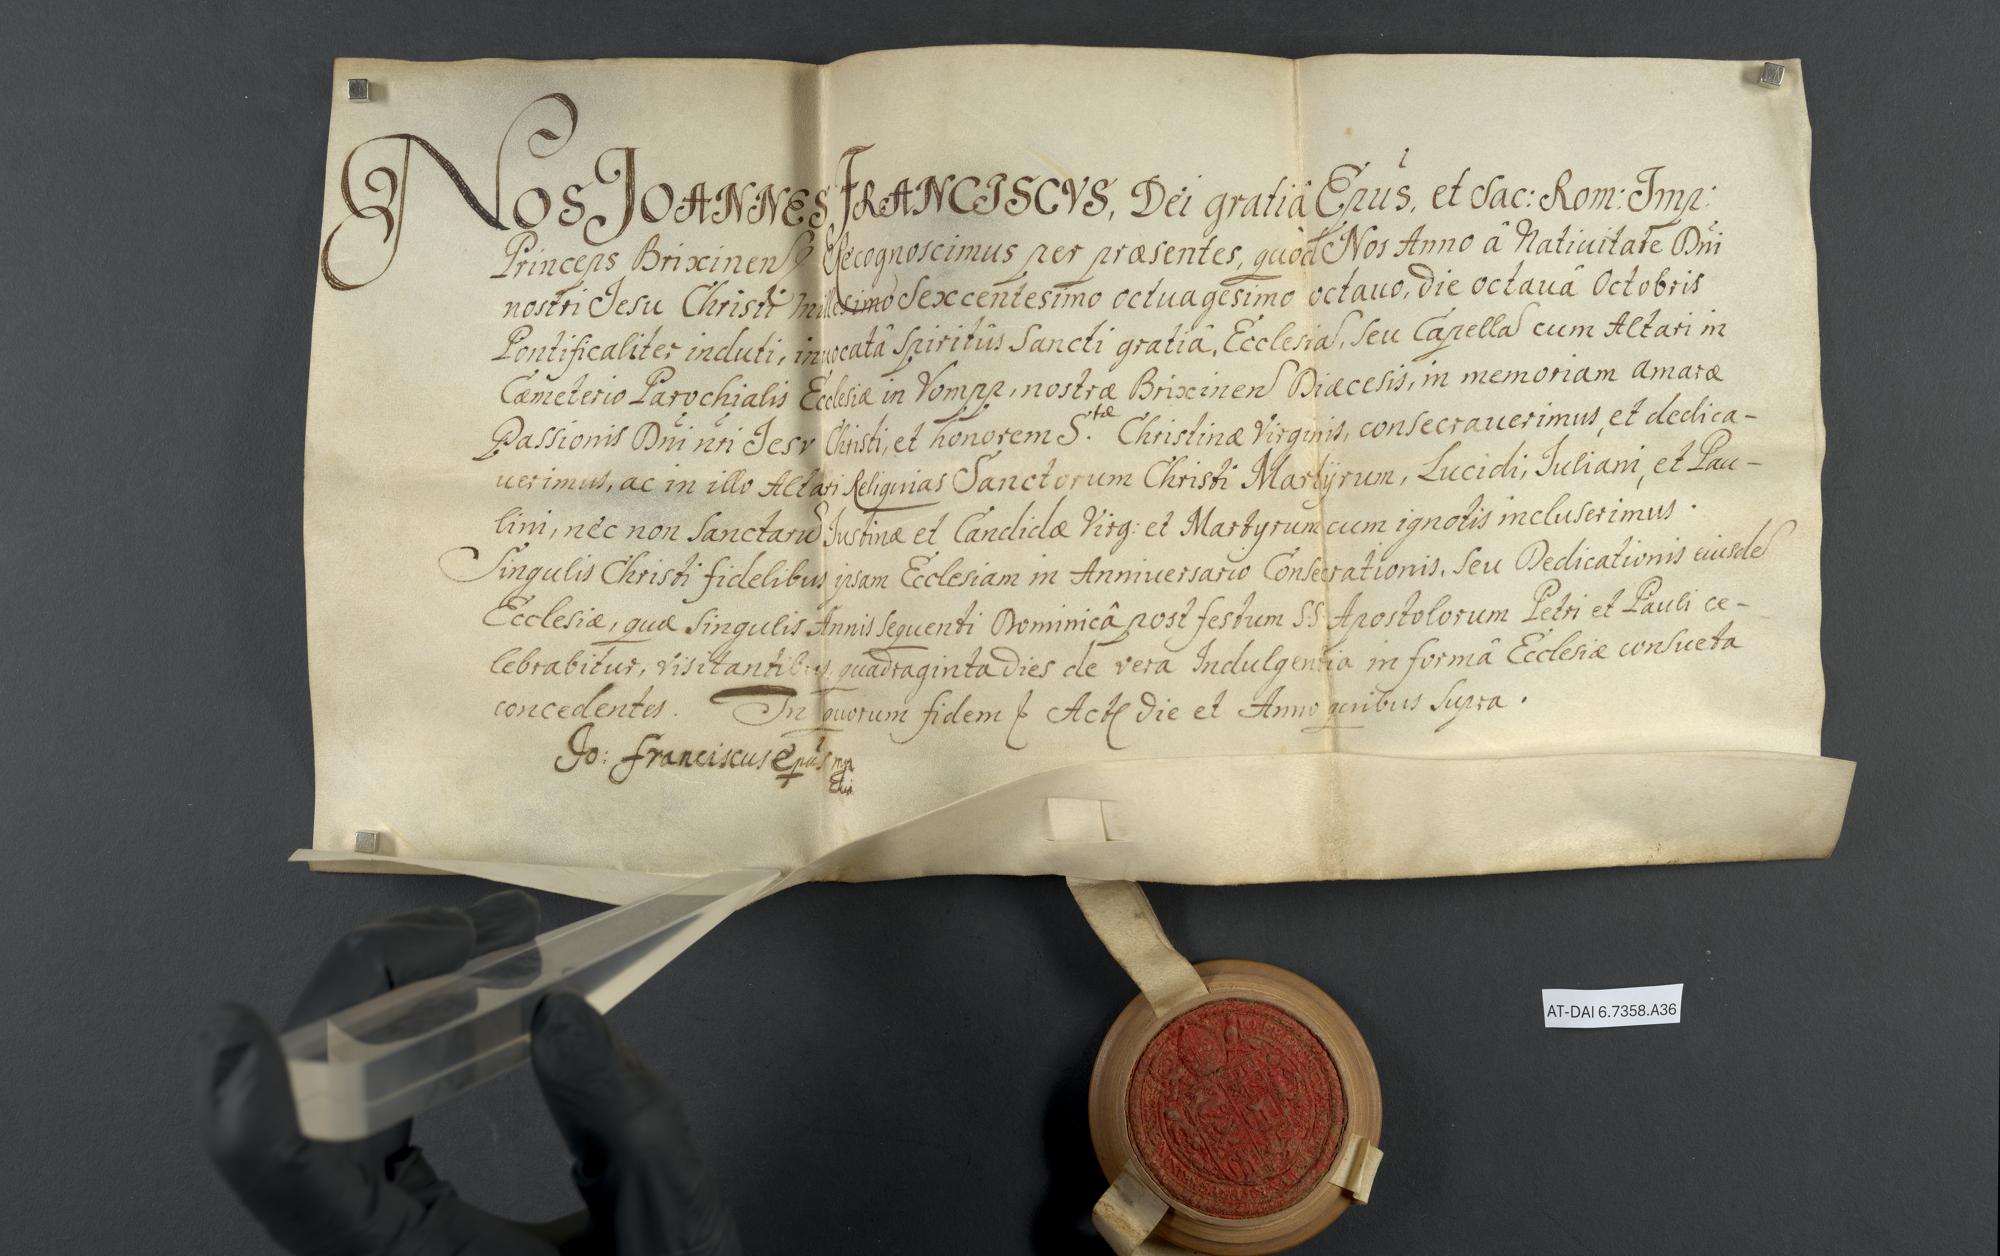 Nos Joannes Franciscvs, Dei gratiâ Epũs, et Sac: Rom: Imp:
Princeps Brixinens Recognoscimus per præsentes, quòd Nos Anno â Natiuitate Dñi
nostri Iesu Christi millesimo Sexcentesimo octuagesimo octauo, die octauâ Octobris
Pontificaliter induti, inuocatâ Spiritûs Sancti gratiâ, Ecclesia, seu Capella cum Altari in
Cæmeterio Parochialis Ecclesiæ in Vompp, nostræ Brixinens Diæcesis, in memoriam amaræ
Passionis Dñi nri Iesv Christi, et honorem S.tæ Christinæ Virginis, consecrauerimus, et dedica-
uerimus, ac in illo Altari Reliquias Sanctorum Christi Martÿrum, Lucidi, Iuliani, et Pau-
lini, nèc non Sanctarũ Iustinæ et Candidæ Virg: et Martyrum cum ignotis incluserimus.
Singulis Christi fidelibus ipsam Ecclesiam in Anniuersario Consecrationis, seu Dedicationis eiusde
Ecclesiæ, quæ singulis Annis sequenti Dominicâ post festum SS Apostolorum Petri et Pauli ce-
lebrabitur, visitantibus, quadraginta Dies de vera Indulgentia in formâ Ecclesiæ consueta
concedentes. In quorum fidem Act Die et Anno quibus supra.
Jo: Franciscus Epũs mp
AT-DAI 6.7358.A36